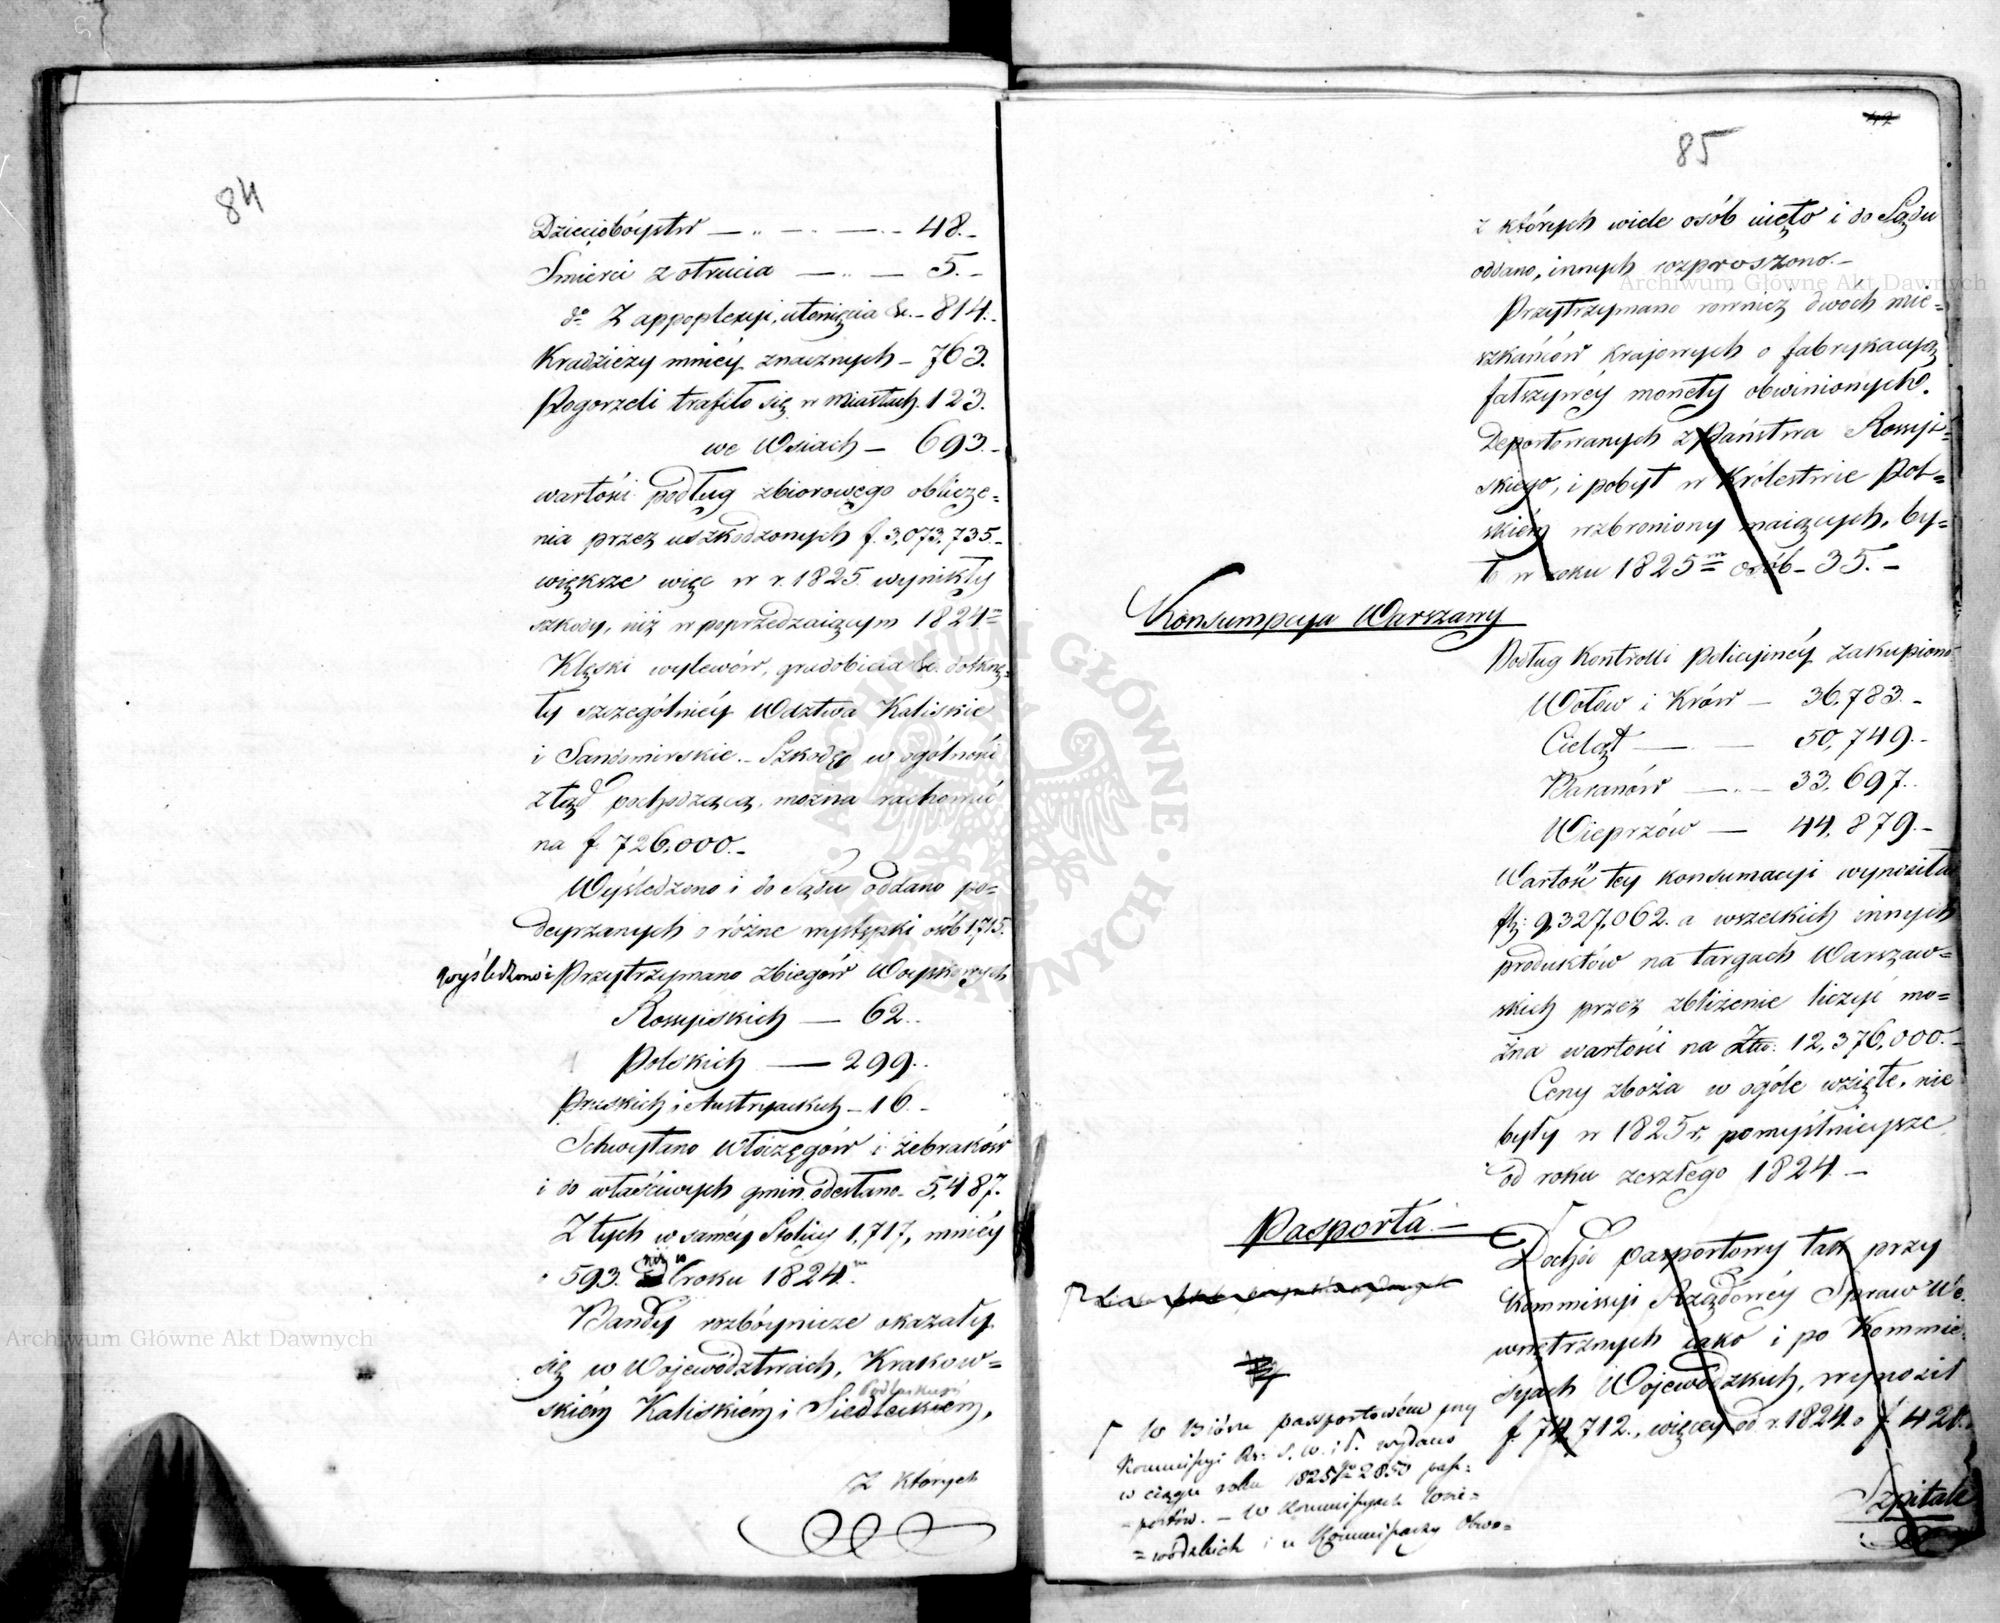 84
Dzieciobóystw — „ — . — . - 48.-
Smierci z otrucia — „ — 5.-
do Z appoplexyi, utonięcia &c. - 814.-
Kradzieży mniéy znacznych - 763.
Pogorzeli trafiło się w miastach. 123.
we Wsiach - 693.-
wartości podług zbiorowego oblicze=
nia przez uszkodzonych f. 3,073,735.-
większe więc w r. 1825. wynikły
szkody, niż w poprzedzaiącym 1824m
Klęski wylewów, gradobicia &c. dotknę=
ły szczególniéy Wdztwa Kaliskie
i Sandomirskie.- Szkodę w ogólności
ztąd pochodzącą, można rachować
na f. 726,000.-
Wyśledzono i do Sądu oddano po=
deyrzanych o różne występki osób 1,715.
wyśledzono i Przytrzymano zbiegów Woyskowych
Rossyiskich — 62..
Polskich — 299..
Pruskich i Austryackich - 16.-
Schwytano włóczęgów i żebraków
i do właściwych gmin odesłano - 5,487.
Z tych w saméy Stolicy 1,717, mniéy
o 593. niż w roku 1824m
Bandy rozbóynicze okazały
się w Województwach, Krakow=
Podlaskiém
skiém Kaliskiém i Siedleckiém,
z których
85
z których wiele osób uięto i do Sądu
oddano, innych rozproszono.-
Przytrzymano rownież dwoch mie=
szkańców krajowych o fabrykacyą
fałszywéy monety obwinionych.
Deportowanych z Państwa Rossyi=
skiego, i pobyt w Królestwie Pol=
skiém wzbroniony maiących, by=
ło w roku 1825m osób - 35.-
Konsumpcyja Warszawy
Podług Kontrolli policyinéy zakupiono
Wołów i Krów — 36,783.-
Cieląt — — 50,749.-
Baranów — „ — 33,697..
Wieprzów — 44,879.-
Wartość tey konsumacyi wynosiła
fl: 9,327,062. a wszelkich innych
produktów na targach Warszaw=
skich przez zbliżenie liczyć mo=
żna wartości na Złw: 12,376,000.-
Ceny zboża w ogóle wzięte, nie
były w 1825 r. pomyślnieysze
od roku zeszłego 1824.-
Pasporta.-
Dochód pasportowy tak przy
Kommissyi Rządowéy Spraw We=
wnętrznych iako i po Kommis=
syach Wojewódzkich, wynosił
f. 74,712., więcey od r. 1824. o f 420.
w Biórze passportowém przy
Kommissyi Rz: S. W. i P. wydano
w ciągu roku 1825go 2850 pass=
=portów. - W Kommissyach Woie=
=wódzkich i u Kommissarzy Obwo=
Szpitale
Archiwum Główne Akt Dawnych
Archiwum Główne Akt Dawnych
ARCHIWUM GŁÓWNE AKT DAWNYCH